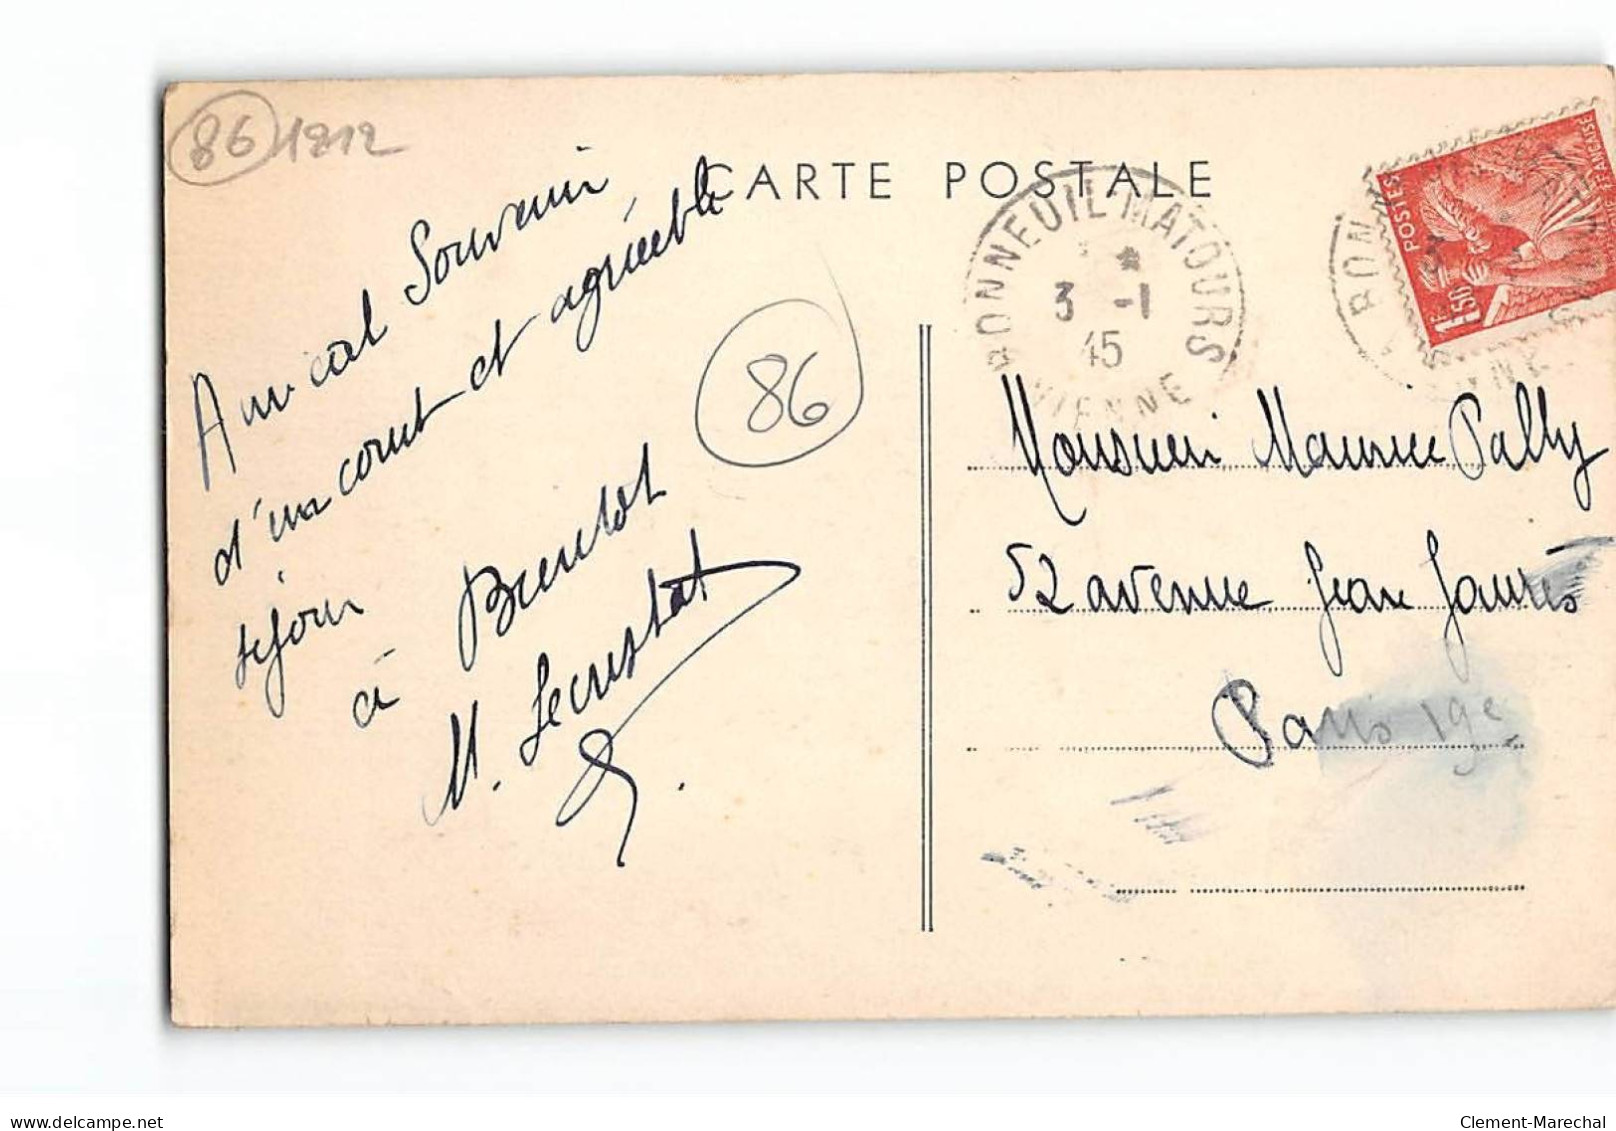 86 1212
CARTE POSTALE
Amical Souvenir
d'un court et agréable
séjour
à
M.
86
BONNEUIL-MATOURS
3 -1
45
VIENNE
POSTES
FRANÇAISE
1F50
Monsieur Maurice Pally
52 avenue Jean Jaurès
Paris 19e
delcampe.net
Clement-Marechal